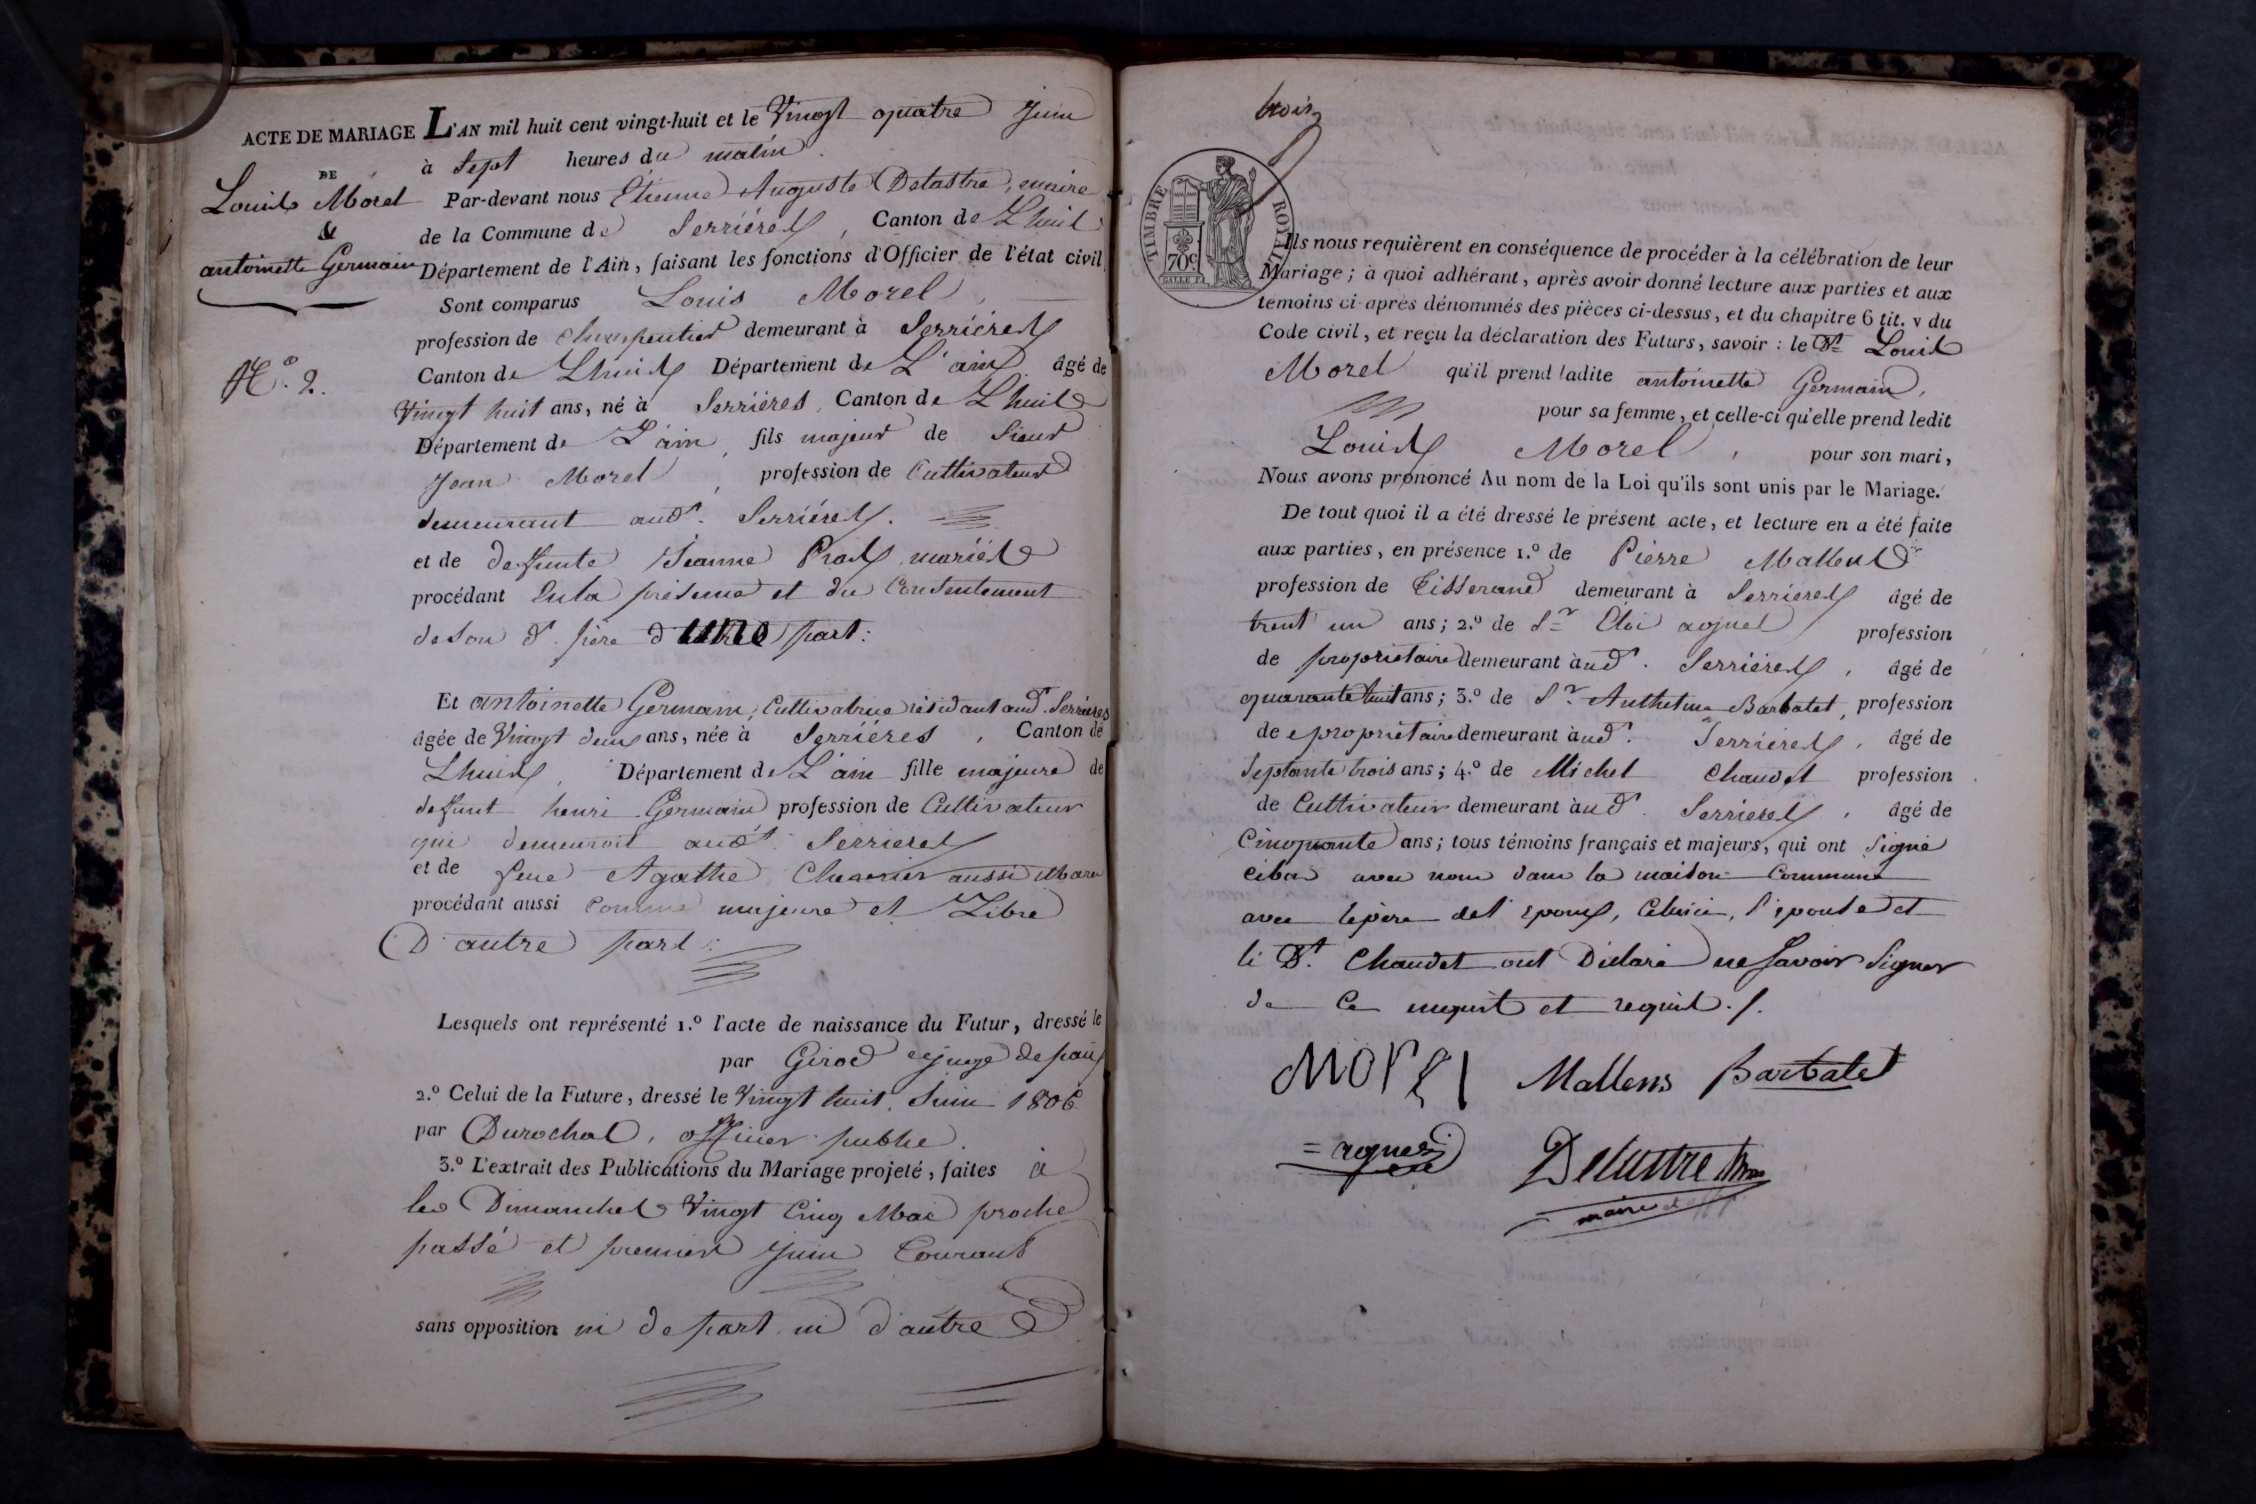 ACTE DE MARIAGE L'AN mil huit cent vingt-huit et le Vingt quatre juin
à Sept heures du matin.
DE
Louis Morel
&
antoinette Germain
N.º 2.
Par-devant nous Etienne Auguste Delastre, maire
de la Commune de Serriéres, Canton de Lhuis
Département de l'Ain, faisant les fonctions d'Officier de l'état civil
Sont comparus Louis Morel,
profession de Charpentier demeurant à Serriéres
Canton de Lhuis Département de L'ain âgé de
Vingt huit ans, né à Serriéres, Canton de Lhuis
Département de L'ain, fils majeur de Sieur
Jean Morel, profession de Cultivateur
demeurant aud.t Serriéres.
et de deffunte Jeanne mariés
procédant En la présence et du Consentement
de son d.t père d'une part:
Et antoinette Germain, Cultivatrice résidant aud.t Serrieres
âgée de Vingt deux ans, née à Serriéres, Canton de
Lhuis, Département de L'ain fille majeure de
deffunt henri Germain profession de Cultivateur
qui demeuroit aud.t Serrieres
et de feue Agathe aussi
procédant aussi Comme majeure et Libre
D'autre part:
Lesquels ont représenté 1.º l'acte de naissance du Futur, dressé le
par Girod juge de paix
2.º Celui de la Future, dressé le Vingt huit Juin 1806
par Durochat, officier public.
3.º L'extrait des Publications du Mariage projeté, faites à
les Dimanches Vingt Cinq Mai proche
passé et premier juin Courant
sans opposition ni de part ni d'autre
trois
TIMBRE ROYAL
70c
Ils nous requièrent en conséquence de procéder à la célébration de leur
Mariage; à quoi adhérant, après avoir donné lecture aux parties et aux
témoins ci-après dénommés des pièces ci-dessus, et du chapitre 6 tit. v du
Code civil, et reçu la déclaration des Futurs, savoir: le d.t Louis
Morel qu'il prend ladite antoinette Germain,
pour sa femme, et celle-ci qu'elle prend ledit
Louis Morel, pour son mari,
Nous avons prononcé Au nom de la Loi qu'ils sont unis par le Mariage.
De tout quoi il a été dressé le présent acte, et lecture en a été faite
aux parties, en présence 1.º de Pierre Mallens
profession de Tisserand demeurant à Serrieres âgé de
trent un ans; 2.º de S.r Eloi aognel profession
de propriétaire demeurant àud.t Serriéres, âgé de
quarante huit ans; 3.º de S.r Anthelme Barbatet, profession
de propriétaire demeurant àud.t Serriéres, âgé de
Septante trois ans; 4.º de Michel Chaudet profession
de Cultivateur demeurant àud.t Serrieres, âgé de
Cinquante ans; tous témoins français et majeurs, qui ont Signé
cibas avec nous dans la maison Commune
avec le père de l'epoux, Celuici, l'epouse et
le d.t Chaudet ont Déclaré ne Savoir Signer
de Ce enquis et requis./.
Morel Mallens Barbatet
Delastre
maire